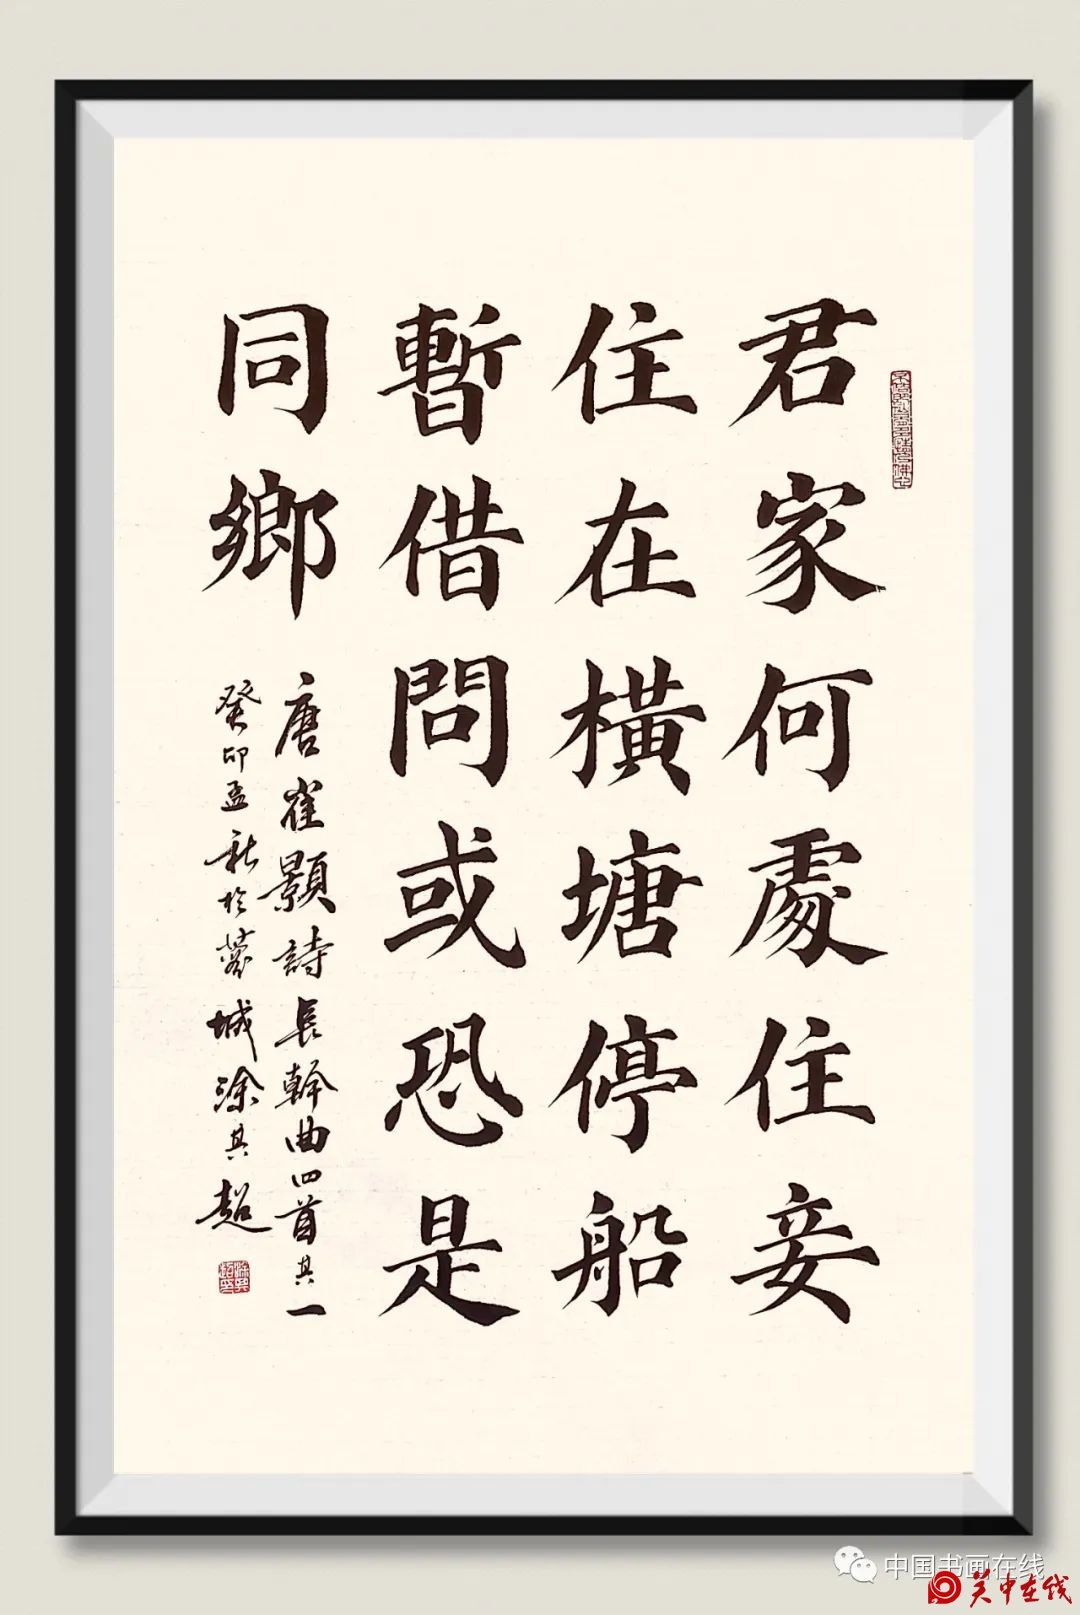 君家何處住妾
住在橫塘停船
暫借問或恐是
同鄉
唐崔顥詩長幹曲四首其一
癸卯孟秋於蓉城涂其超
中国书画在线
关中在线